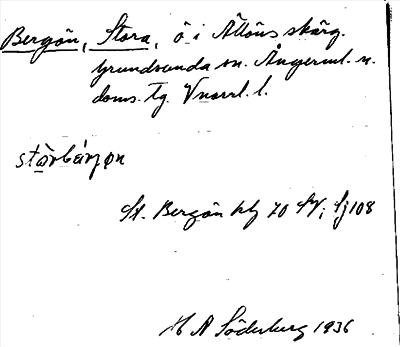 Bergön, Stora, ö i Ållöns skärg.
Grundsunda sn. Ångerml. n.
doms. tg. Vnorrl. l.
stòrbǽrjøn
St. Bergön kbl 70 SV; Sj 108
H A Söderberg 1936